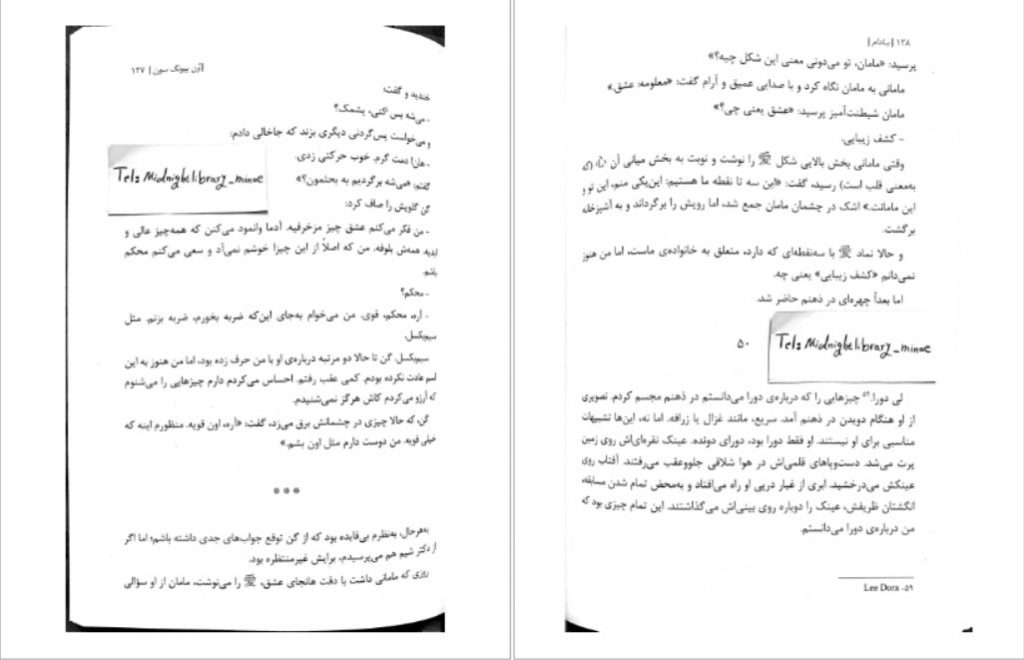 آژن پیونگ سون | ۱۲۷
خندید و گفت:
- می‌شه پس اکنی، پشمک؟
و می‌خواست پس‌گردنی دیگری بزند که جاخالی دادم.
- هان! دمت گرم. خوب حرکتی زدی.
گفتم: «می‌شه برگردیم به بحثمون؟»
گن گلویش را صاف کرد:
Tel: Midnightlibrary_minoe
- من فکر می‌کنم عشق چیز مزخرفیه. آدما وانمود می‌کنن که همه‌چیز عالی و
ابدیه. همه‌ش بلوفه. من که اصلاً از این چیزا خوشم نمی‌آد و سعی می‌کنم محکم
باشم.
- محکم؟
- آره، محکم، قوی. من می‌خوام به‌جای این‌که ضربه بخورم، ضربه بزنم. مثل
سیم‌بکسل.
سیم‌بکسل. گن تا حالا دو مرتبه درباره‌ی او با من حرف زده بود، اما من هنوز به این
اسم عادت نکرده بودم. کمی عقب رفتم. احساس می‌کردم دارم چیزهایی را می‌شنوم
که آرزو می‌کردم کاش هرگز نمی‌شنیدم.
گن، که حالا چیزی در چشمانش برق می‌زد، گفت: «آره، اون قویه. منظورم اینه که
خیلی قویه. من دوست دارم مثل اون بشم.»
به‌هرحال، به‌نظرم بی‌فایده بود که از گن توقع جواب‌های جدی داشته باشم؛ اما اگر
از دکتر شیم هم می‌پرسیدم، برایش غیرمنتظره بود.
روزی که مامانی داشت با دقت هانجای عشق، 愛 را می‌نوشت، مامان از او سؤالی
۱۲۸ | بادام |
پرسید: «مامان، تو می‌دونی معنی این شکل چیه؟»
مامانی به مامان نگاه کرد و با صدایی عمیق و آرام گفت: «معلومه: عشق.»
مامان شیطنت‌آمیز پرسید: «عشق یعنی چی؟»
- کشف زیبایی.
وقتی مامانی بخش بالایی شکل 愛 را نوشت و نوبت به بخش میانی آن 心 (که
به‌معنی قلب است) رسید، گفت: «این سه تا نقطه ما هستیم: این‌یکی منم، این تو و
این مامانت.» اشک در چشمان مامان جمع شد، اما رویش را برگرداند و به آشپزخانه
برگشت.
و حالا نماد 愛 با سه‌نقطه‌ای که دارد، متعلق به خانواده‌ی ماست، اما من هنوز
نمی‌دانم «کشف زیبایی» یعنی چه.
اما بعداً چهره‌ای در ذهنم حاضر شد.
۵۰
Tel: Midnightlibrary_minoe
لی دورا.۵۹ چیزهایی را که درباره‌ی دورا می‌دانستم در ذهنم مجسم کردم. تصویری
از او هنگام دویدن در ذهنم آمد. سریع، مانند غزال یا زرافه. اما نه، این‌ها تشبیهات
مناسبی برای او نیستند. او فقط دورا بود، دورای دونده. عینک نقره‌ای‌اش روی زمین
پرت می‌شد. دست‌وپاهای قلمی‌اش در هوا شلاقی جلووعقب می‌رفتند. آفتاب روی
عینکش می‌درخشید. ابری از غبار درپی او راه می‌افتاد و به‌محض تمام شدن مسابقه،
انگشتان ظریفش، عینک را دوباره روی بینی‌اش می‌گذاشتند. این تمام چیزی بود که
من درباره‌ی دورا می‌دانستم.
۵۹- Lee Dora